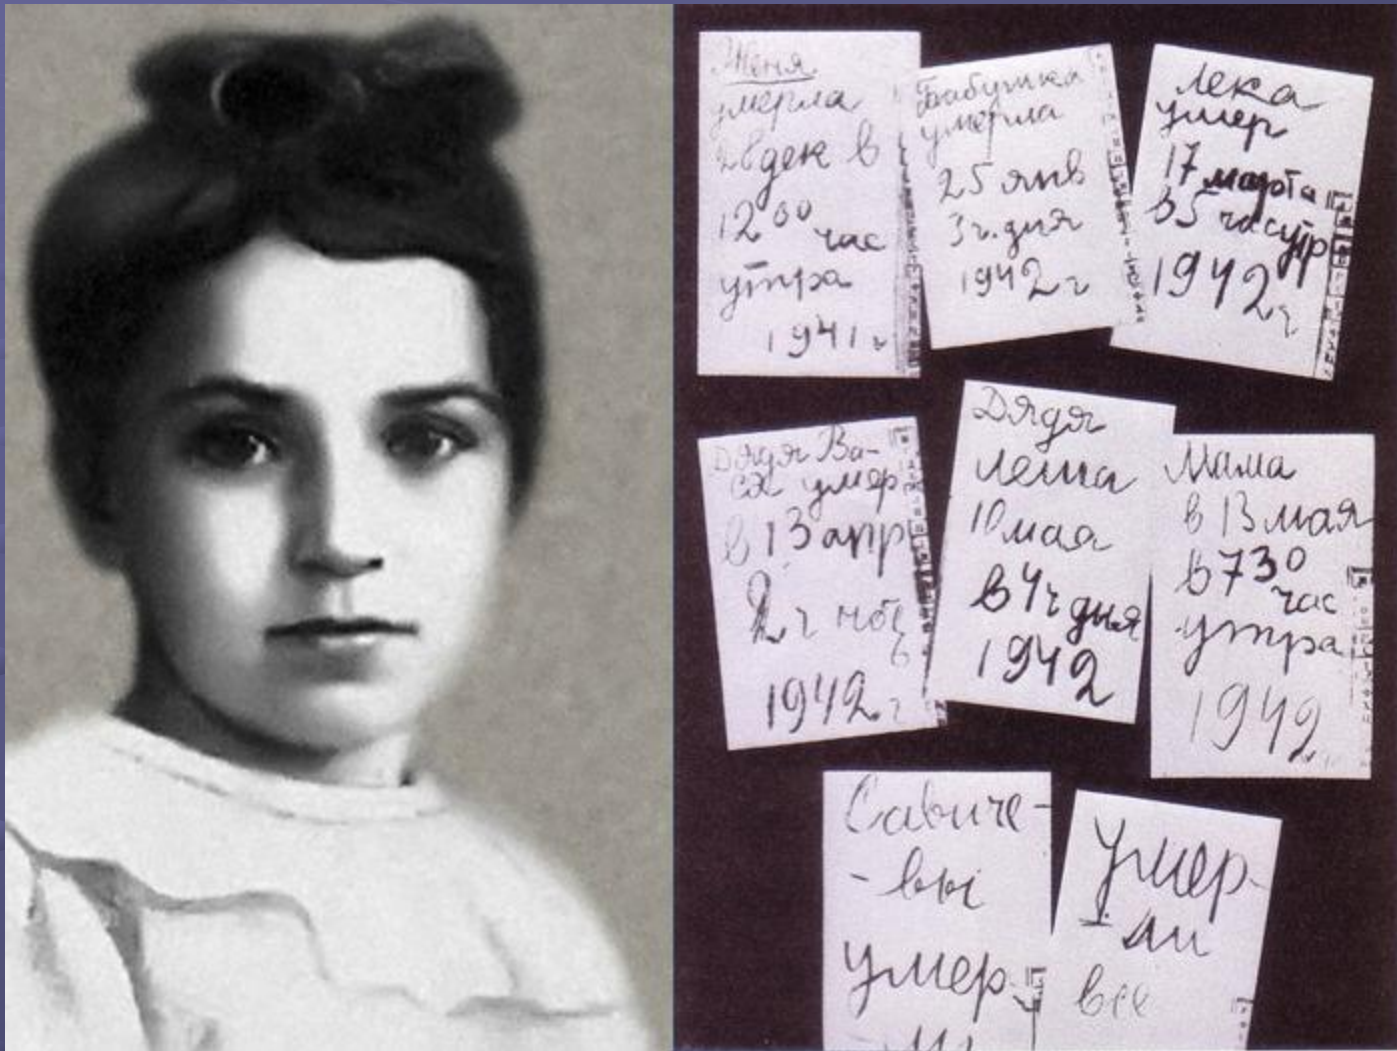 Женя
умерла
28 дек в
12 00 час
утра
1941 г
Бабушка
умерла
25 янв
3 ч. дня
1942 г
Лека
умер
17 марта
в 5 час утр
1942 г
Дядя Ва-
ся умер
в 13 апр
2 ч ноч
1942 г
Дядя
Леша
10 мая
в 4 ч дня
1942
Мама
в 13 мая
в 7 30
час
утра
1942
Савиче-
-вы
умер-
ли
Умер-
ли
все